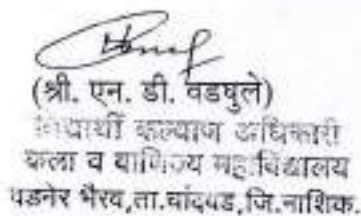 (श्री. एन. डी. वडघुले)
विद्यार्थी कल्याण अधिकारी
कला व वाणिज्य महाविद्यालय
वडनेर भैरव,ता.चांदवड,जि.नाशिक.